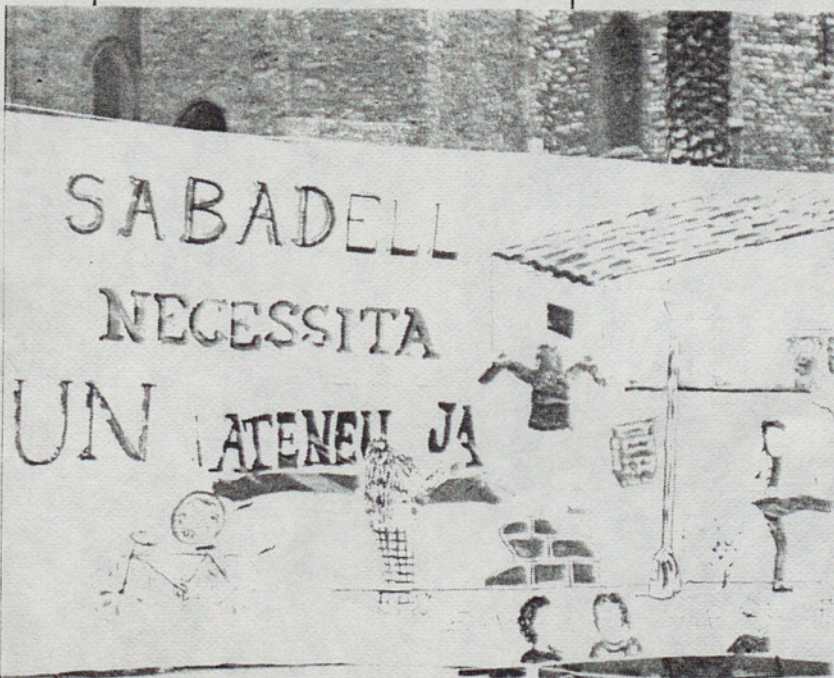 SABADELL
NECESSITA
UN ATENEU JA